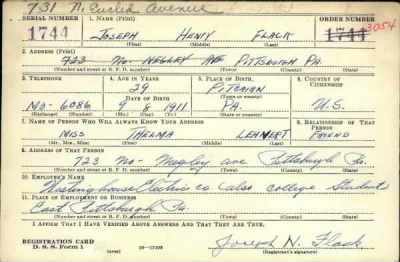 731 N. Euclid Avenue
SERIAL NUMBER 1. NAME (Print) ORDER NUMBER
1744 JOSEPH HENRY FLACK 1744 3054
(First) (Middle) (Last)
2. ADDRESS (Print)
723 No- NEGLEY AVE PITTSBURGH PA.
(Number and street or R. F. D. number) (Town) (County) (State)
3. TELEPHONE 4. AGE IN YEARS 5. PLACE OF BIRTH 6. COUNTRY OF CITIZENSHIP
29 PITCAIRN
DATE OF BIRTH (Town or county)
MO- 6086 9 8 1911 PA. U.S.
(Exchange) (Number) (Mo.) (Day) (Yr.) (State or country)
7. NAME OF PERSON WHO WILL ALWAYS KNOW YOUR ADDRESS 8. RELATIONSHIP OF THAT PERSON
MISS THELMA FRIEND
(Mr., Mrs., Miss) (First) (Middle) (Last)
9. ADDRESS OF THAT PERSON
723 No- ave Pittsburgh Pa.
(Number and street or R. F. D. number) (Town) (County) (State)
10. EMPLOYER'S NAME
Westinghouse Electric co. also college student
11. PLACE OF EMPLOYMENT OR BUSINESS
East Pittsburgh Pa.
(Number and street or R. F. D. number) (Town) (County) (State)
I AFFIRM THAT I HAVE VERIFIED ABOVE ANSWERS AND THAT THEY ARE TRUE.
REGISTRATION CARD
D. S. S. Form 1 (over) 16—17105 Joseph H. Flack
(Registrant's signature)